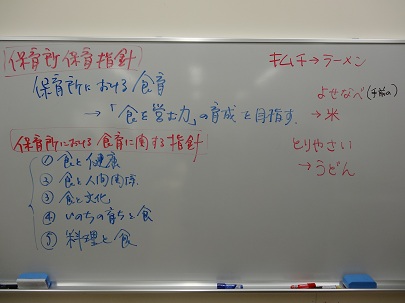 保育所保育指針
保育所における食育
→「食を営む力」の育成を目指す
保育所における食育に関する指針
① 食と健康
② 食と人間関係
③ 食と文化
④ いのちの育ちと食
⑤ 料理と食
キムチ→ラーメン
よせなべ
→米
とりやさい
→うどん